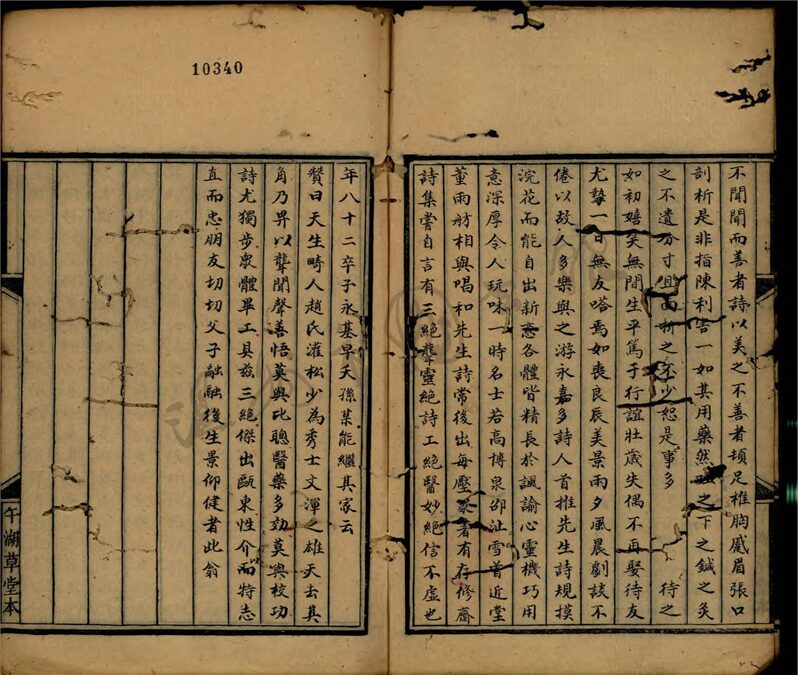 10340
不聞聞而善者詩以美之不善者頓足椎胸蹙眉張口
剖析是非指陳利害一如其用藥然之下之鍼之灸
之不遺分寸且面析之不少恕是事多 待之
如初嬉笑無間生平篤于行誼壯歲失偶不再娶待友
尤摯一日無友嗒焉如喪良辰美景雨夕風晨劇談不
倦以故人多樂與之游永嘉多詩人首推先生詩規摸
浣花而能自出新意各體皆精長於諷諭心靈機巧用
意深厚令人玩味一時名士若高博泉邵沚雪曾近堂
董雨舫相與唱和先生詩常後出每壓衆著有存修齋
詩集嘗自言有三絕聾靈絕詩工絕醫妙絕信不虛也
年八十二卒子永基早夭孫某能繼其家云
贊曰天生畸人趙氏灌松少為秀士文渾之雄天去其
角乃畀以聾聞聲善悟莫與比聰醫藥多効莫與校功
詩尤獨步衆體畢工具茲三絕傑出甌東性介而特志
直而忠朋友切切父子融融後生景仰健者此翁
午湖草堂本